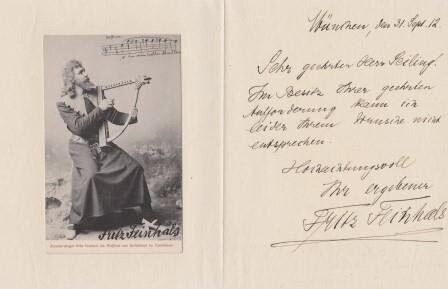 Fritz Feinhals
Kammersänger Fritz Feinhals als Wolfram von Eschenbach im Tannhäuser.
München, den 21. Sept. 12.
Sehr geehrter Herr Heiling!
Im Besitz Ihrer geehrten
Aufforderung kann ich
leider Ihrem Wunsche nicht
entsprechen.
Hochachtungsvoll
Ihr ergebener
Fritz Feinhals